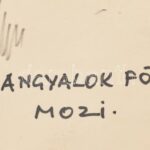 ANGYALOK FÖ
MOZI.